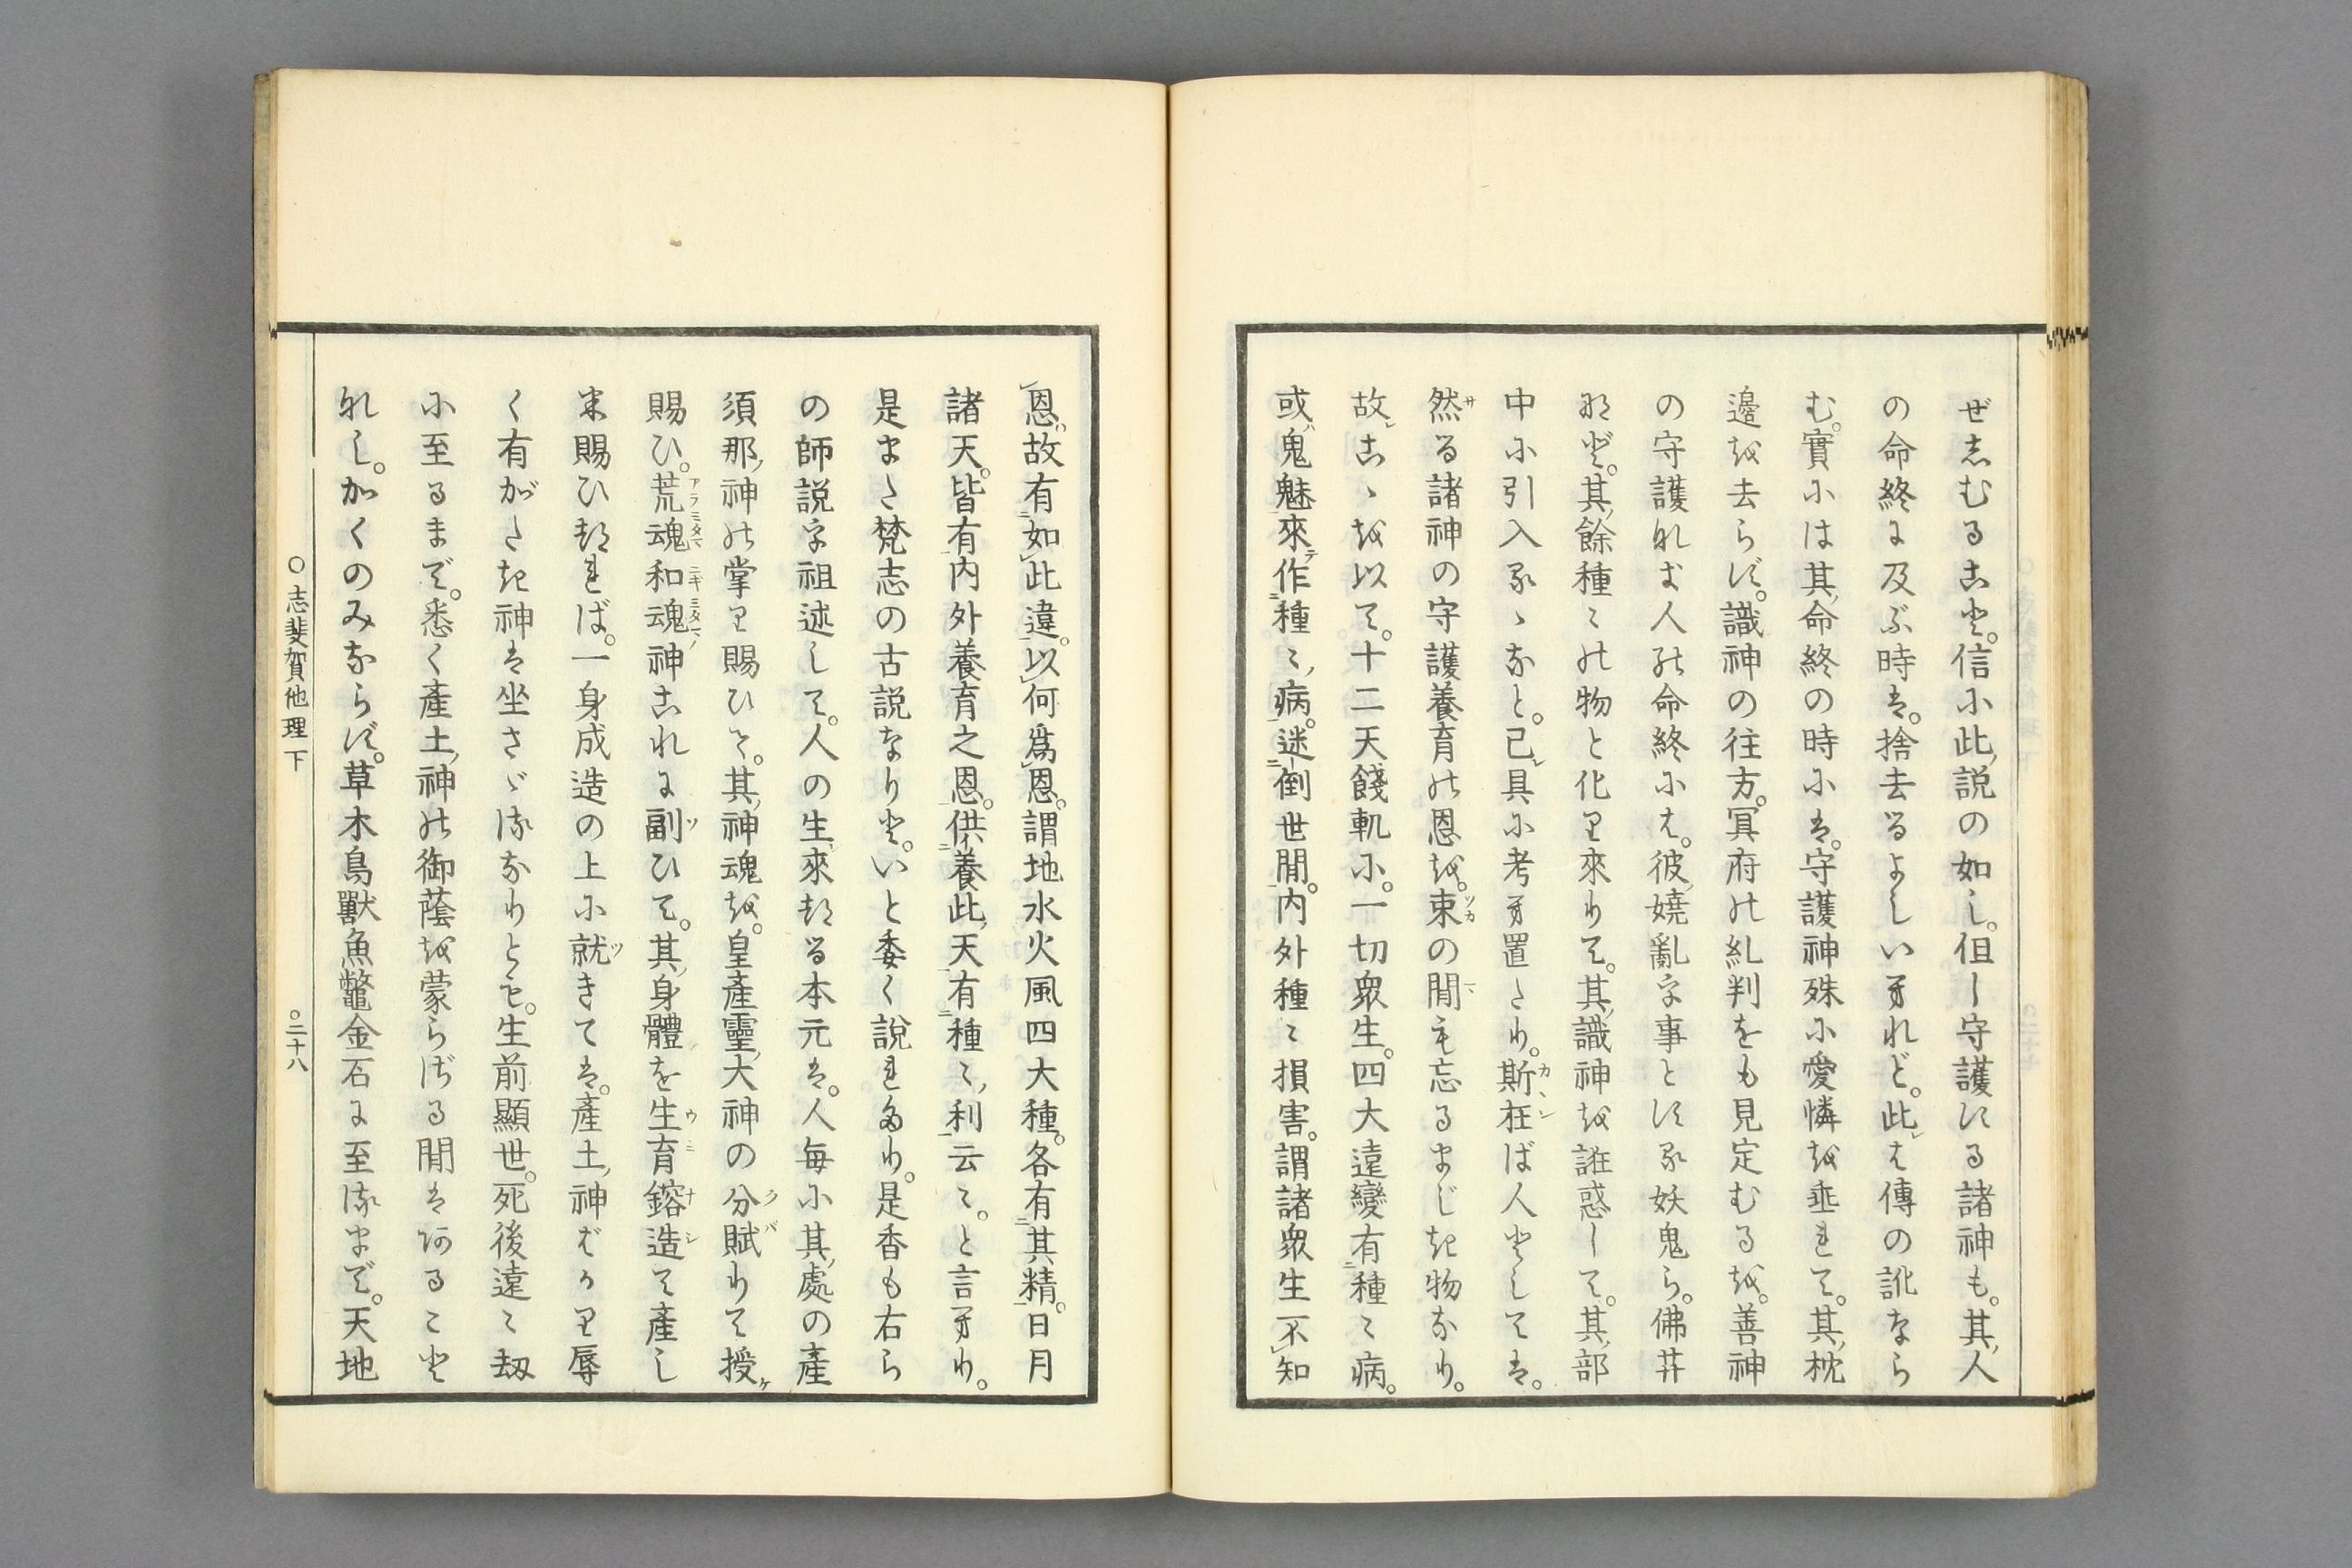 ぜしむること。信に此説の如し。但し守護する諸神も。其人
の命終に及ぶ時は。捨去るよしいへれど。此は傳の訛なら
む。實には其命終の時には。守護神殊に愛憐を垂れて。其枕
邊を去らず。識神の往方。冥府の糺判をも見定むるを。善神
の守護なき人の命終には。彼嬈亂を事とする妖鬼ら。佛菩
など。其餘種々の物と化り來りて。其識神を誑惑して。其部
中に引入るゝなと。已具に考へ置たり。斯在ば人としては。
然る諸神の守護養育の恩を。束の間も忘るまじき物なり。
故こゝを以て。十二天餞軌に。一切衆生。四大違變有種々病。
或鬼魅來作種々病。迷倒世間。内外種々損害。謂諸衆生不知
恩。故有如此違。以何爲恩。謂地水火風四大種。各有其精。日月
諸天。皆有内外養育之恩。供養此天有種々利云々。と言へり。
是また梵志の古説なりと。いと委く説れたり。是香も右ら
の師説を祖述して。人の生來れる本元は。人毎に其處の產
須那神の掌り賜ひて。其神魂を。皇產靈大神の分賦りて授
賜ひ。荒魂和魂神これに副ひて。其身體を生育鎔造て產し
來賜ひければ。一身成造の上に就きては。產土神ばかり辱
く有がたき神は坐さゞるなりとも。生前顯世。死後遠々劫
に至るまで。悉く產土神の御蔭を蒙らざる間はあること
なし。かくのみならず。草木鳥獸魚鼈金石に至るまで。天地
○志斐賀他理 下
○二十八